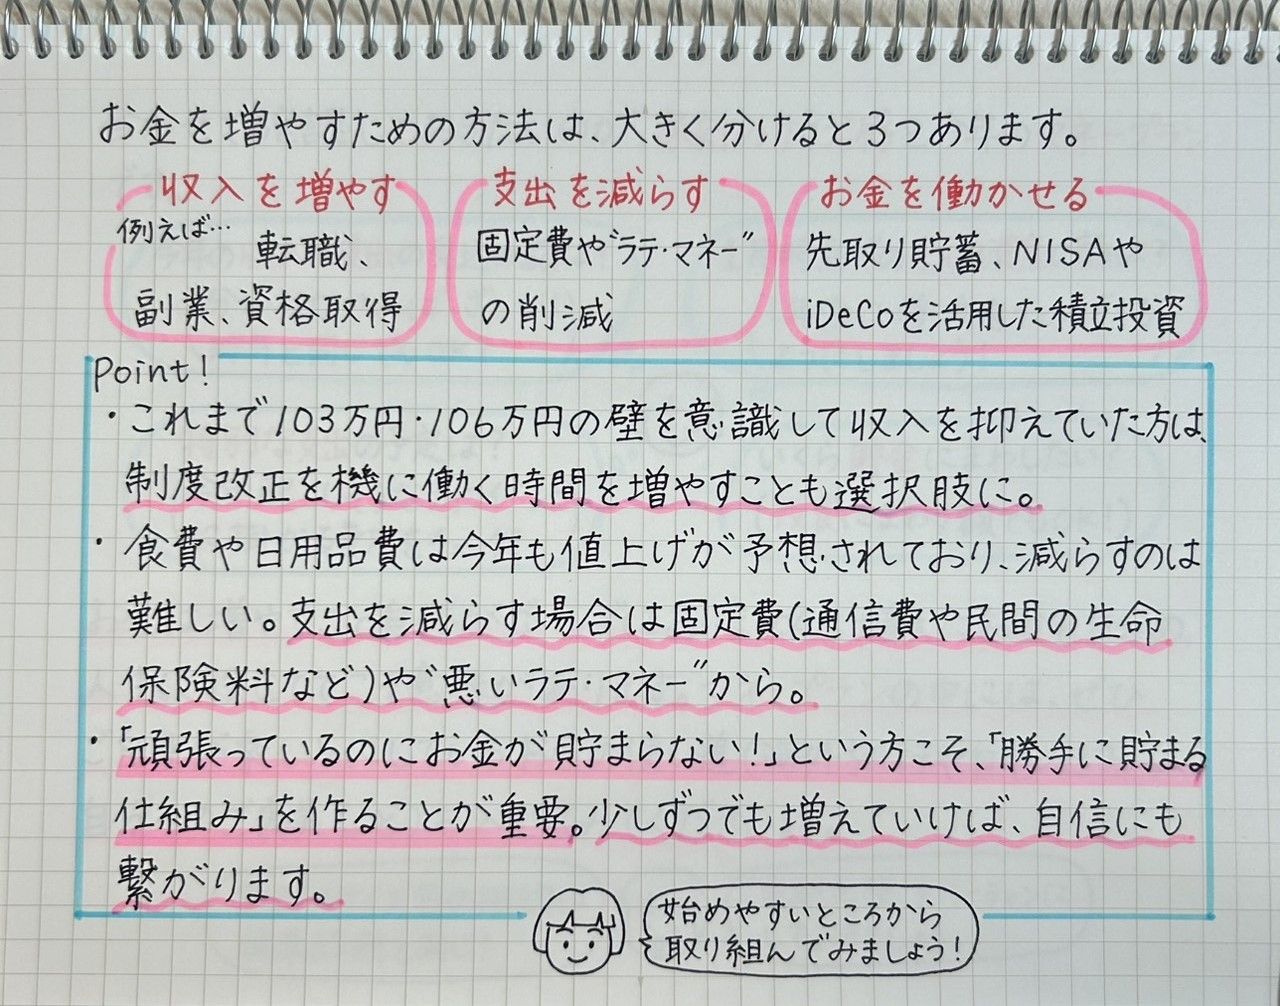 お金を増やすための方法は、大きく分けると3つあります。
収入を増やす
例えば…
転職、
副業、資格取得
支出を減らす
固定費や"ラテ・マネー"
の削減
お金を働かせる
先取り貯蓄、NISAや
iDeCoを活用した積立投資
Point!
・これまで103万円・106万円の壁を意識して収入を抑えていた方は、
制度改正を機に働く時間を増やすことも選択肢に。
・食費や日用品費は今年も値上げが予想されており、減らすのは
難しい。支出を減らす場合は固定費(通信費や民間の生命
保険料など)や"悪いラテ・マネー"から。
・「頑張っているのにお金が貯まらない!」という方こそ、「勝手に貯まる
仕組み」を作ることが重要。少しずつでも増えていけば、自信にも
繋がります。
始めやすいところから
取り組んでみましょう!